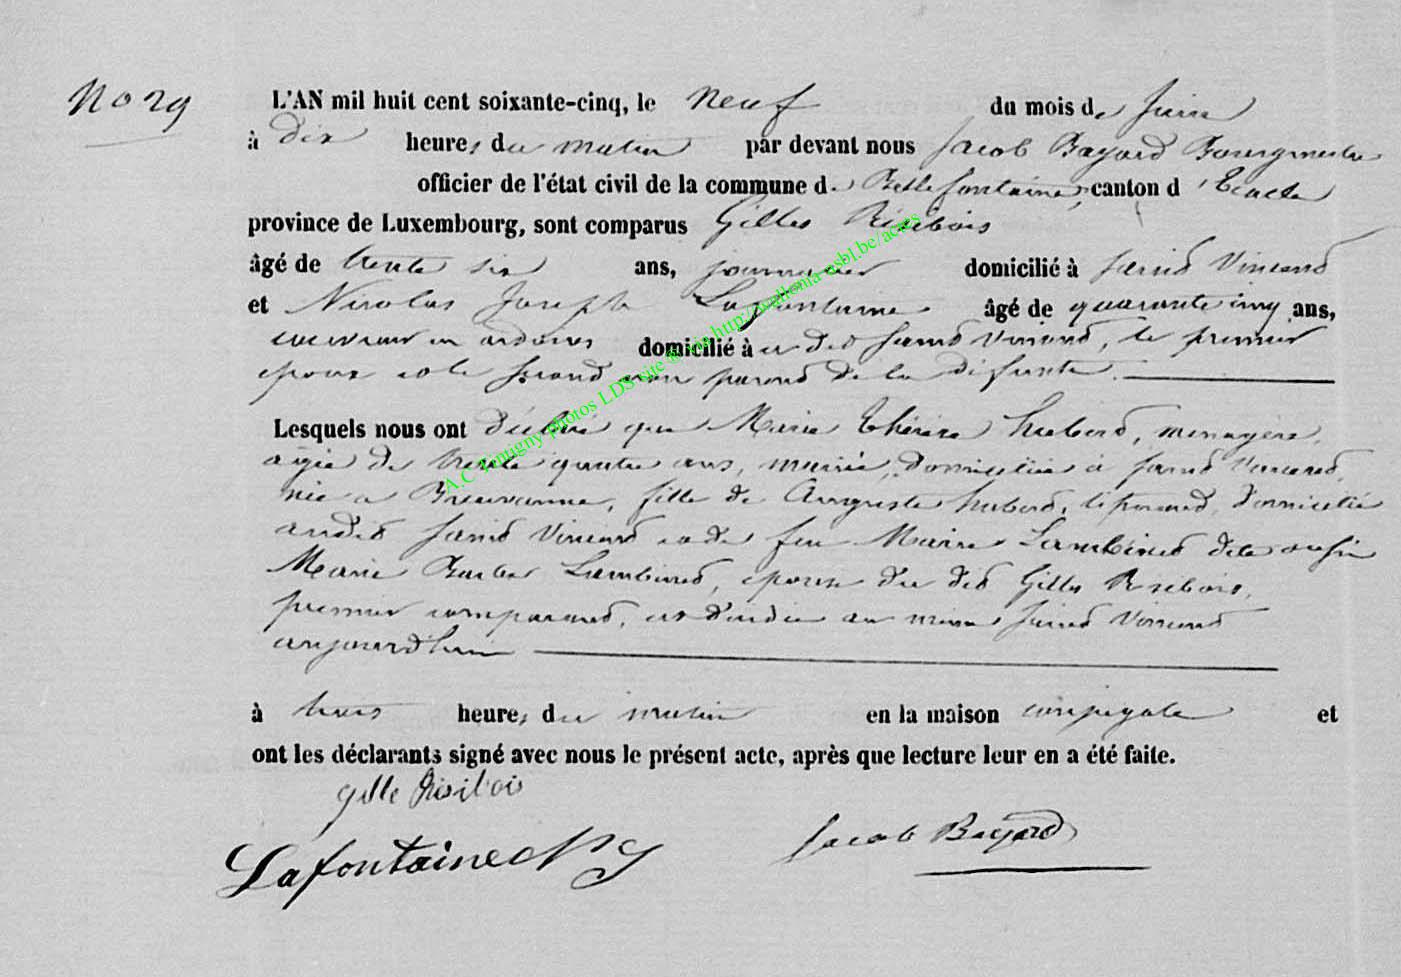 No 29
L'AN mil huit cent soixante-cinq, le neuf du mois de Juin
à dix heures du matin par devant nous Jacob Bayard Bourgmestre
officier de l'état civil de la commune de Bellefontaine, canton d'Etalle
province de Luxembourg, sont comparus Gilles Risebois
âgé de trente six ans, journalier domicilié à Saint Vincent
et Nicolas Joseph Lafontaine âgé de quarante cinq ans,
couvreur en ardoises domicilié à au dit Saint Vincent, le premier
époux et le second non parent de la défunte.
Lesquels nous ont déclaré que Marie Thérèse Hubert, ménagère,
agée de trente quatre ans, mariée, domiciliée à Saint Vincent,
née à Breuvanne, fille de Auguste Hubert, domicilié
audit Saint Vincent et de feu Marie Lambinet dite aussi
Marie Barbe Lambinet, épouse du dit Gilles Risebois,
premier comparant, est décédée au même Saint Vincent
aujourd'hui
à trois heures du matin en la maison conjugale et
ont les déclarants signé avec nous le présent acte, après que lecture leur en a été faite.
gille Risibois
Lafontaine NJ Jacob Bayard
A.C Tintigny photos LDS site © via http://wallonia-asbl.be/actes